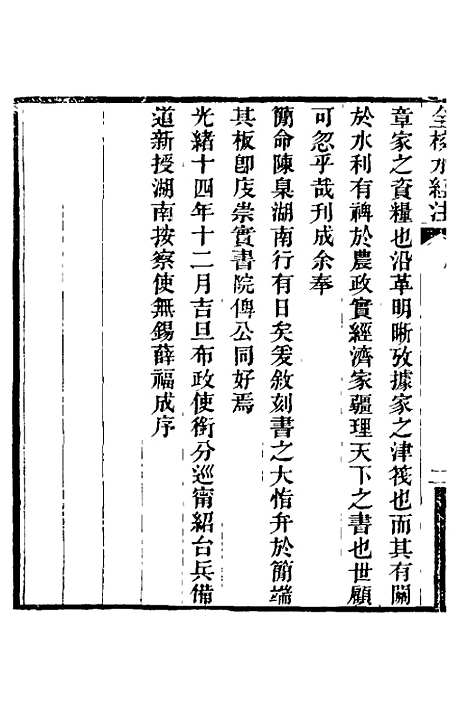 全校水經注
章家之資糧也沿革明晰攷據家之津筏也而其有關
於水利有裨於農政實經濟家疆理天下之書也世顧
可忽乎哉刊成余奉
簡命陳臬湖南行有日矣爰敘刻書之大恉弁於簡端
其板卽庋崇實書院俾公同好焉
光緒十四年十二月吉旦布政使銜分巡甯紹台兵備
道新授湖南按察使無錫薛福成序